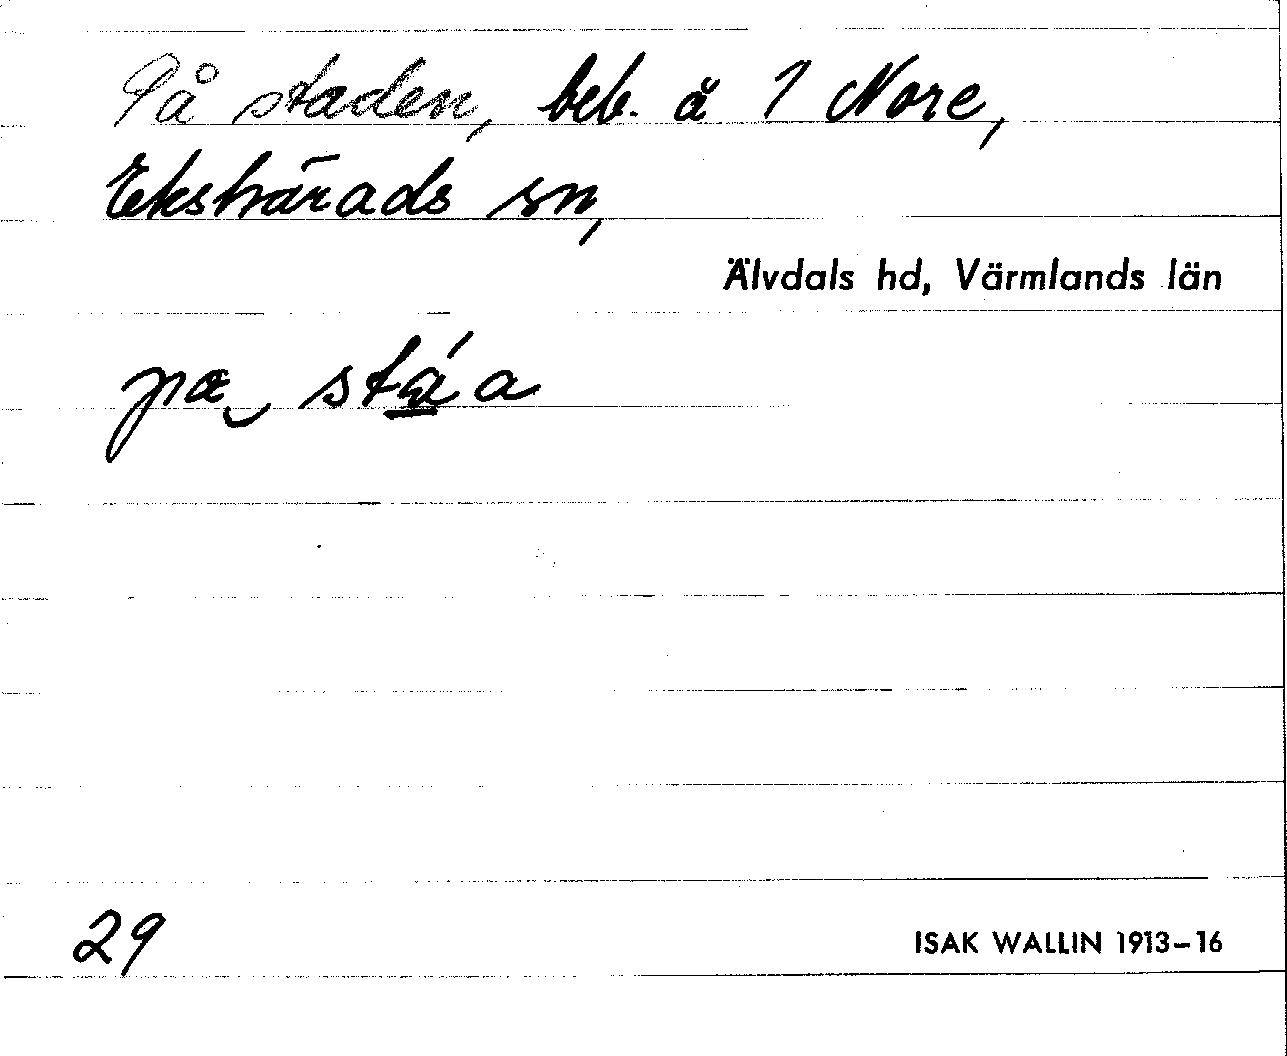 På staden, beb. å 1 Nore,
Ekshärads sn,
Älvdals hd, Värmlands län
pæ stá̱a
29
ISAK WALLIN 1913–16